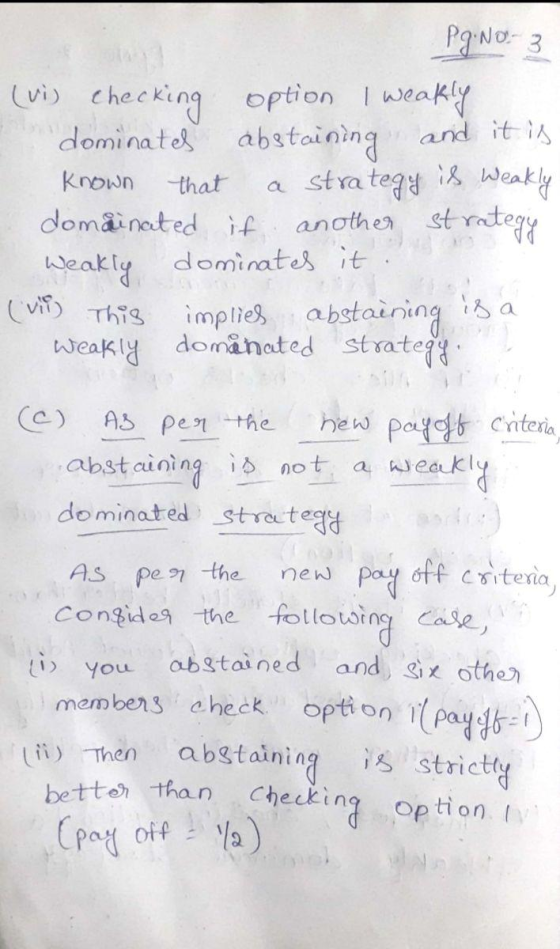 Pg.No:- 3
(vi) checking option 1 weakly
dominates abstaining and it is
known that a strategy is weakly
dominated if another strategy
weakly dominates it.
(vii) This implies abstaining is a
weakly dominated strategy.
(c) As per the new payoff criteria,
abstaining is not a weakly
dominated strategy
As per the new pay off criteria,
consider the following case,
(i) you abstained and six other
members check option 1 (payoff=1)
(ii) Then abstaining is strictly
better than checking option 1
(pay off = 1/2)